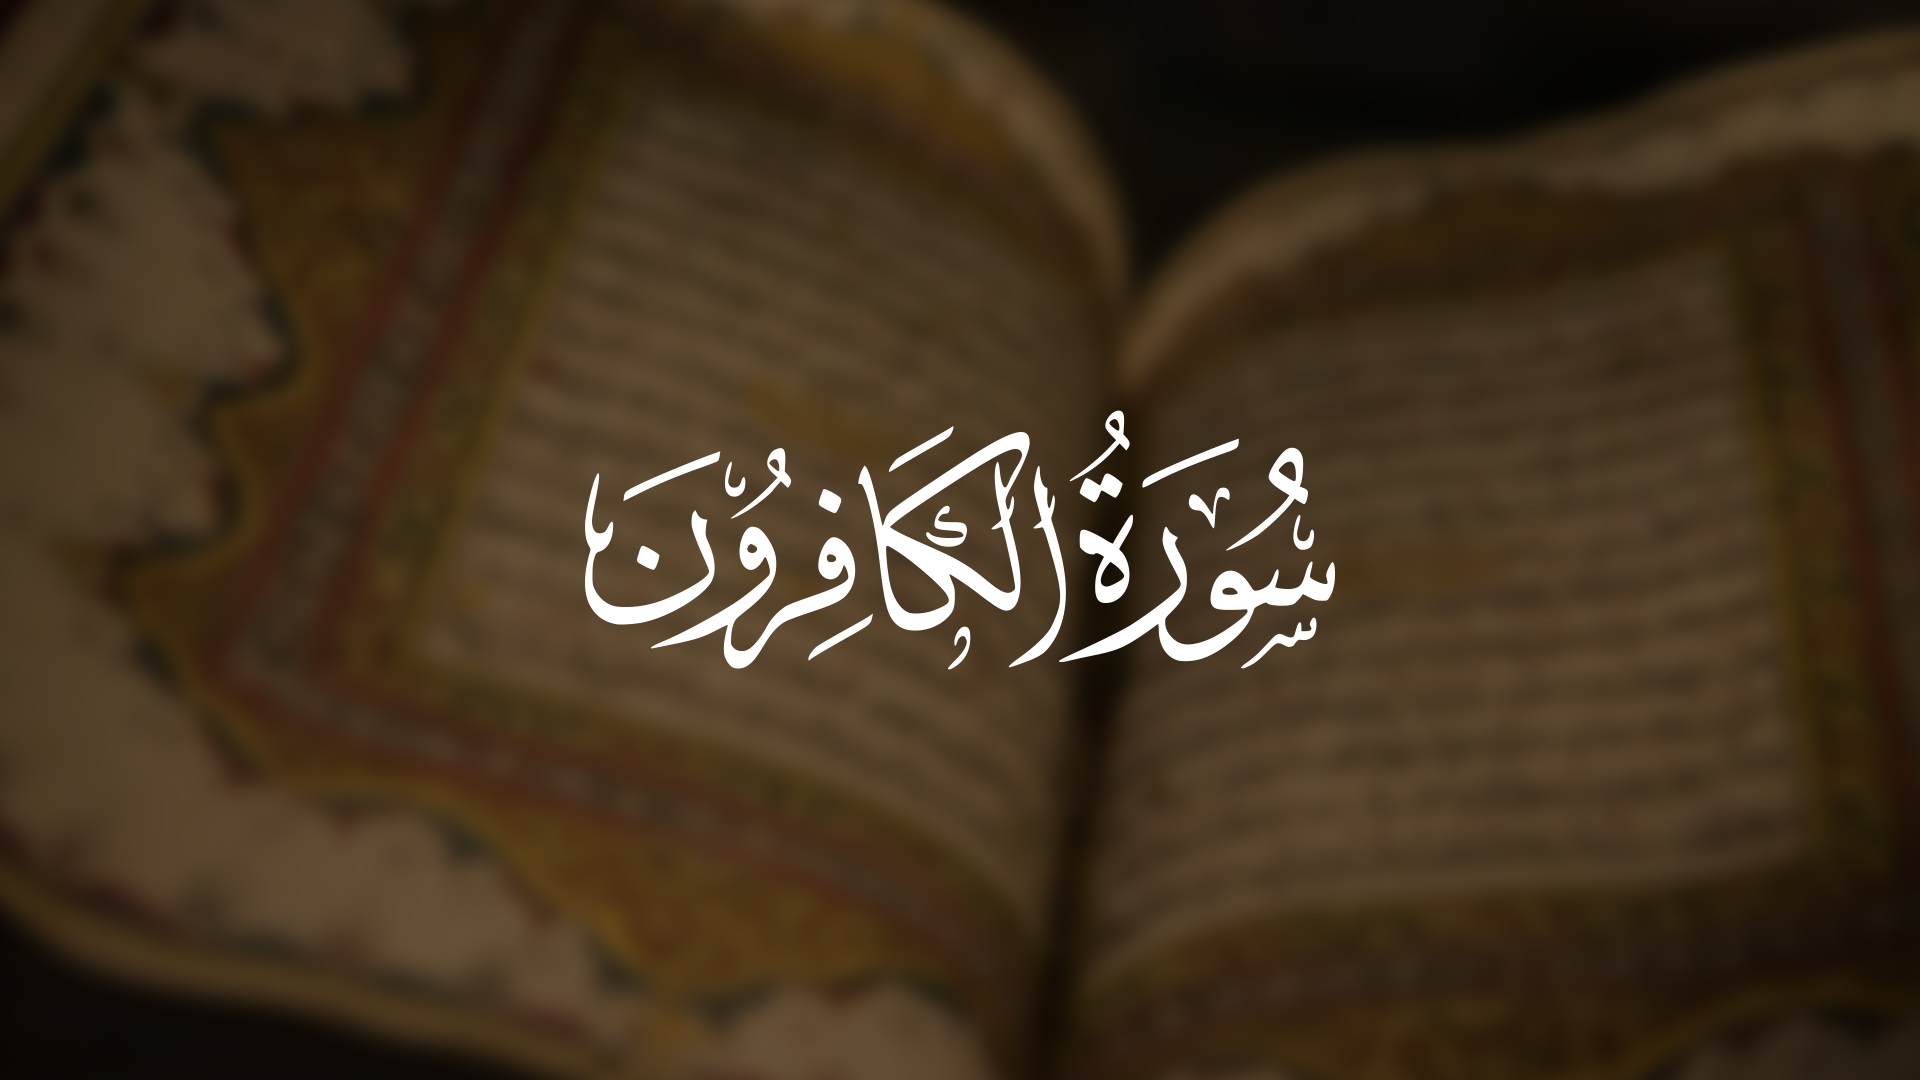 سُورَةُ الْكَافِرُونَ